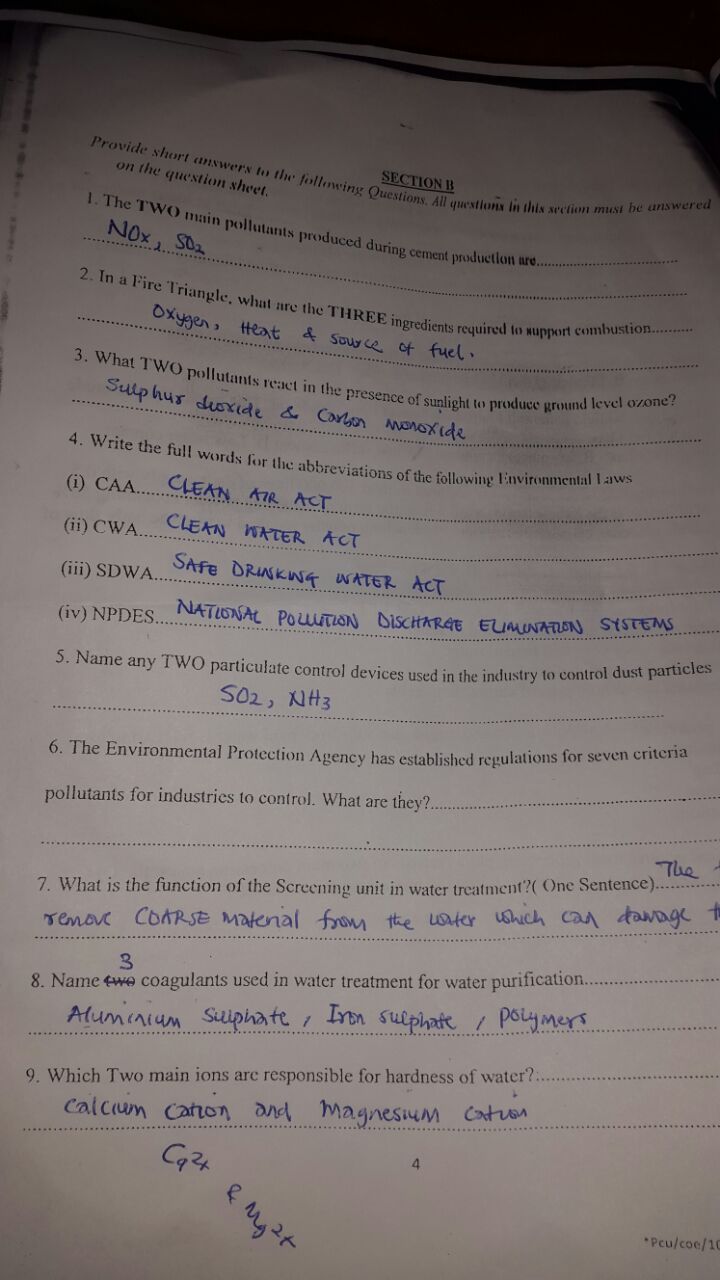 SECTION B
Provide short answers to the following Questions. All questions in this section must be answered
on the question sheet.
1. The TWO main pollutants produced during cement production are....................................
NOx, SO2
2. In a Fire Triangle, what are the THREE ingredients required to support combustion..........
Oxygen, Heat & source of fuel.
3. What TWO pollutants react in the presence of sunlight to produce ground level ozone?
Sulphur dioxide & Carbon monoxide
4. Write the full words for the abbreviations of the following Environmental Laws
(i) CAA..... CLEAN AIR ACT
(ii) CWA.... CLEAN WATER ACT
(iii) SDWA.... SAFE DRINKING WATER ACT
(iv) NPDES.... NATIONAL POLLUTION DISCHARGE ELIMINATION SYSTEMS
5. Name any TWO particulate control devices used in the industry to control dust particles
SO2, NH3
6. The Environmental Protection Agency has established regulations for seven criteria
pollutants for industries to control. What are they?...........................
7. What is the function of the Screening unit in water treatment?( One Sentence)....... The
remove COARSE material from the water which can damage
3
8. Name two coagulants used in water treatment for water purification........................
Aluminium Sulphate, Iron sulphate, polymers
9. Which Two main ions are responsible for hardness of water?:............................
Calcium cation and Magnesium cation
Ca2+
& Mg2+
4
*Pcu/coe/10